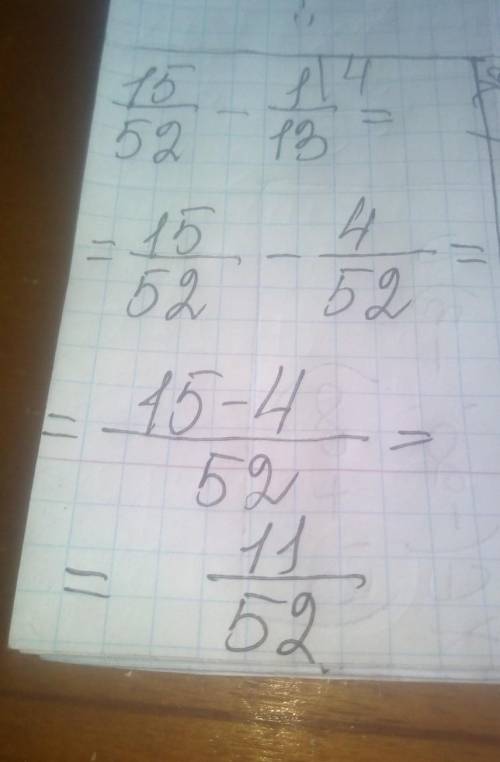 15/52 - 1\4/13 =
= 15/52 - 4/52 =
= 15-4/52 =
= 11/52